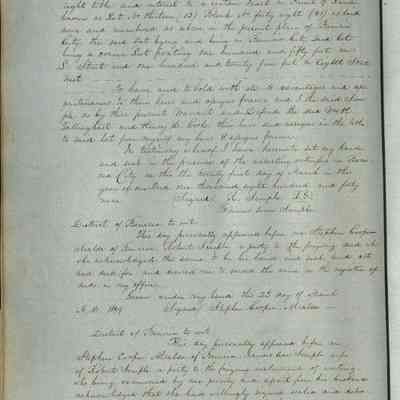 right title and interest to a certain tract or parcel of land
known as Lot No thirteen (13) Block No forty eight (48) as laid
down and numbered as above in the present plan of Benicia
City, the said lot being and lying in Benicia said lot
being a corner Lot fronting one hundred and fifty feet on
L Street and one hundred and twenty five feet on Eighth Street
West
To have and to hold with its advantages and app
to them heirs and assigns forever and I the said
do by these present Warrant and defend the said
and Henry D. Cooke their heirs and assigns in the title
to said lot from myself my heirs & assigns forever.
In testimony whereof I have hereunto set my hand
and seal in the presence of the subscribing witnesses in
City on this the twenty first day of March in the
year of our Lord one thousand eight hundred and forty
nine (Signed) R. Semple L.S.
Semple
District of Benicia to wit
This day personally appeared before me Stephen Cooper
Alcalde of Benicia Robert Semple a party to the foregoing and
he acknowledged the same to be his hand and seal, and act
and deed for and desired me to record the same in the register of
deeds in my office.
Given under my hand this 23 day of March
A.D. 1849 Signed Stephen Cooper Alcalde
District of Benicia to wit
This day personally appeared before me
Stephen Cooper Alcalde of Benicia Semple wife
of Robert Semple a party to the foregoing instrument of writing
she being examined by me privily and apart from her husband
acknowledged that she had willingly signed sealed and